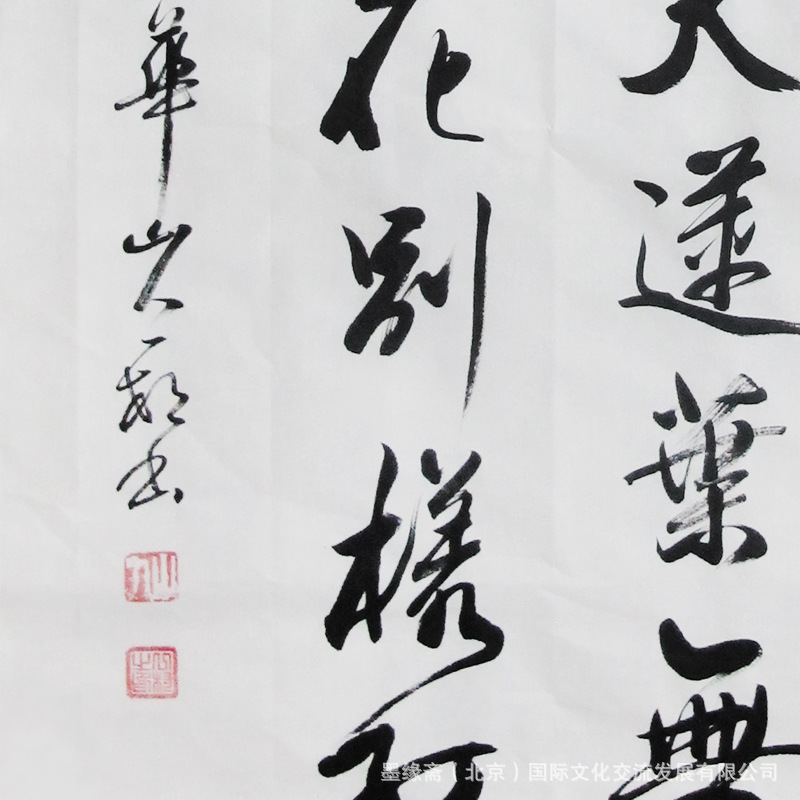 天蓮葉無
花別樣紅
華山人書
墨缘斋（北京）国际文化交流发展有限公司